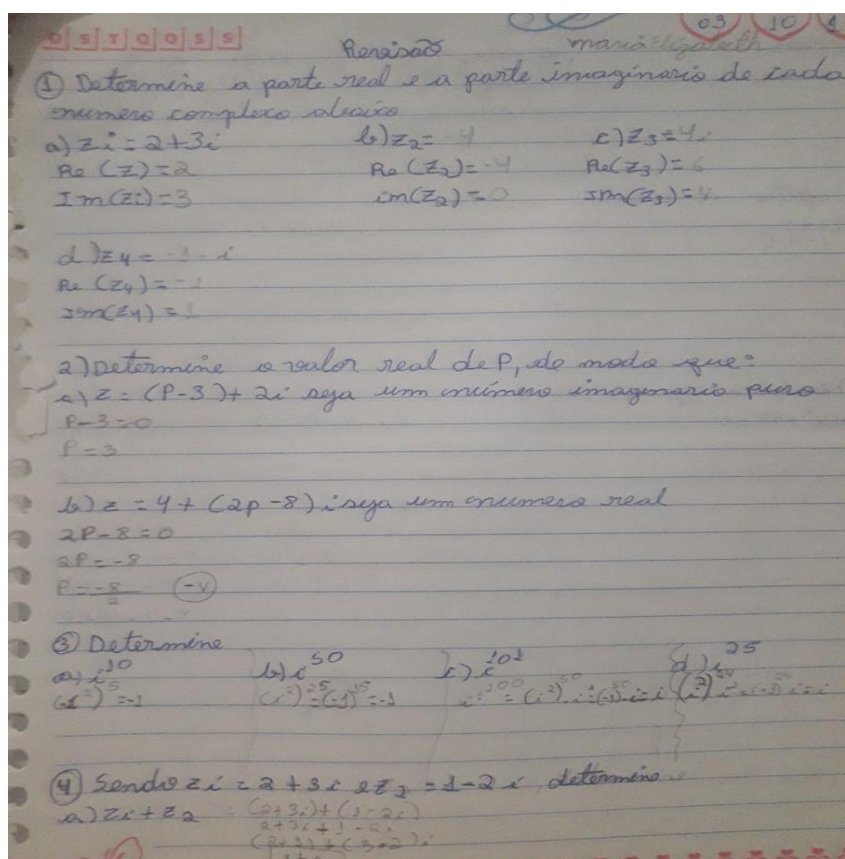 D S T Q Q S S
03 10
Revisão maria Elizabeth
① Determine a parte real e a parte imaginario de cada
numero complexo abaixo
a) Zi = 2+3i b) Z2 = -4 c) Z3 = 4i
Re (Z) = 2 Re (Z2) = -4 Re(Z3) = 6
Im(Zi) = 3 im(Z2) = 0 Im(Z3) = 4
d) Z4 = -1 - i
Re (Z4) = -1
Im(Z4) = 1
2) Determine o valor real de P, de modo que:
a) Z = (P-3) + 2i seja um número imaginario puro
P-3=0
P = 3
b) z = 4 + (2p-8) i seja um numero real
2P-8=0
2P = -8
P = -8/2 -4
③ Determine
a) i^10 b) i^50 c) i^101 d) i^25
(-1^2)^5 = -1 (i^2)^25 = (-1)^25 = -1
④ Sendo zi = 2 + 3i e Z2 = 1-2i determine
a) Zi + Z2 (2+3i) + (1-2i)
2+3i + 1-2i
(2+1) + (3-2)i